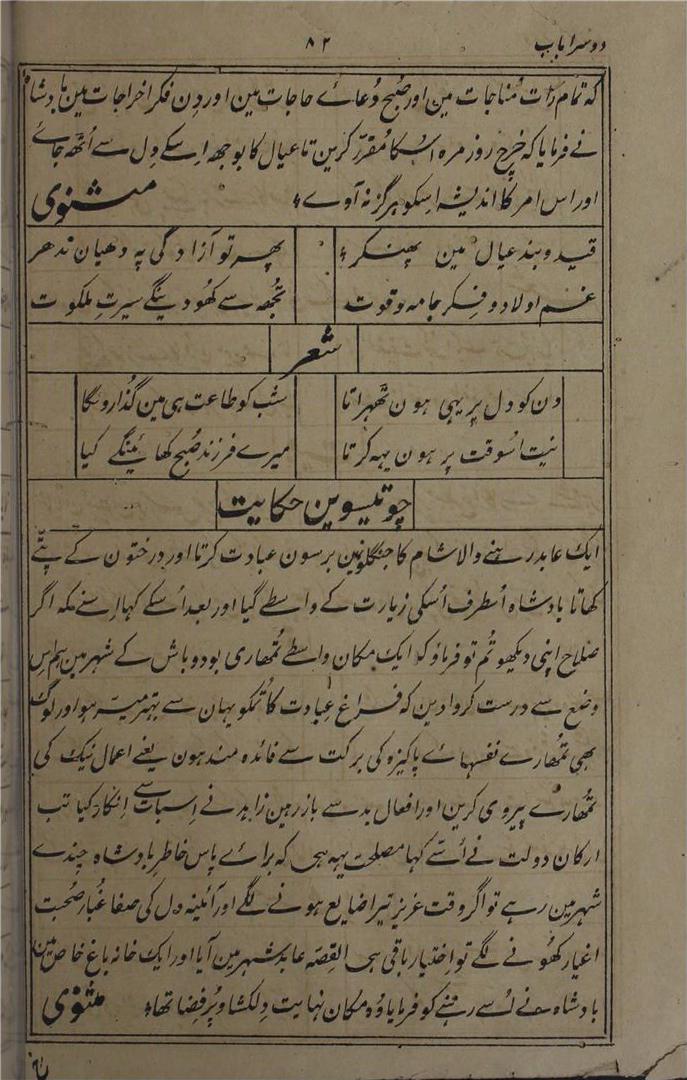 دوسرا باب ۸۲
کہ تمام رات مُناجات مین اور صُبح دُعاے حاجات مین اور دِن فکر اخراجات مین بادشاہ
نے فرمایا کہ خرچ روز مرہ اسکا مُقرّر کرین تا عیال کا بوجھ اِسکے دِل سے اُٹھ جاے
اور اس امر کا اندیشہ اِسکو ہرگز نہ آوے مثنوی
قید و بند عیال مین پھنسکر پھر تو آزادگی پہ دھیان ندھر
غم اولاد و فِکر جامہ و قوت تُجھ سے کھو دینگے سیرتِ ملکوت
شعر
دن کو دل پر یہی ہون ٹھہراتا شب کو طاعت ہی مین گذارونگا
نیت اسوقت پر ہون یہہ کرتا میرے فرزند صُبح کھائینگے کیا
چوتیسوین حکایت
ایک عابد رہنے والا شام کا جنگلونمین برسون عبادت کرتا اور درختون کے پتّے
کھاتا بادشاہ اُسطرف اُسکی زیارت کے واسطے گیا اور بعد اُسکے کہا اسنے کہ اگر
صلاح اپنی دیکھو تُم تو فرماؤ کہ ایک مکان واسطے تُمھاری بود و باش کے شہر مین ہم اِس
وضع سے درست کروادین کہ فراغ عِبادت کا تُمکو یہان سے بہتر میسّر ہو اور لوگ
بھی تُمھارے نفسہاے پاکیزہ کی برکت سے فائدہ مند ہون یعنے اعمال نیک کی
تُمھارے پیروی کرین اور افعال بد سے باز رہین زاہد نے اِسبات سے اِنکار کیا تب
ارکان دولت نے اُسّے کہا مصلحت یہہ ہی کہ براے پاس خاطر بادشاہ چندے
شہر مین رہے تو اگر وقت عزیز تیرا ضایع ہونے لگے اور آئینہ دل کی صفا غُبار صُحبت
اغیار کھونے لگے تو اِختیار باقی ہی القِصّہ عابد شہر مین آیا اور ایک خانہ باغ خاص مین
بادشاہ نے اُسے رہنے کو فرمایا وہ مکان نہایت دِلکشا و پُر فِضا تھا مثنوی